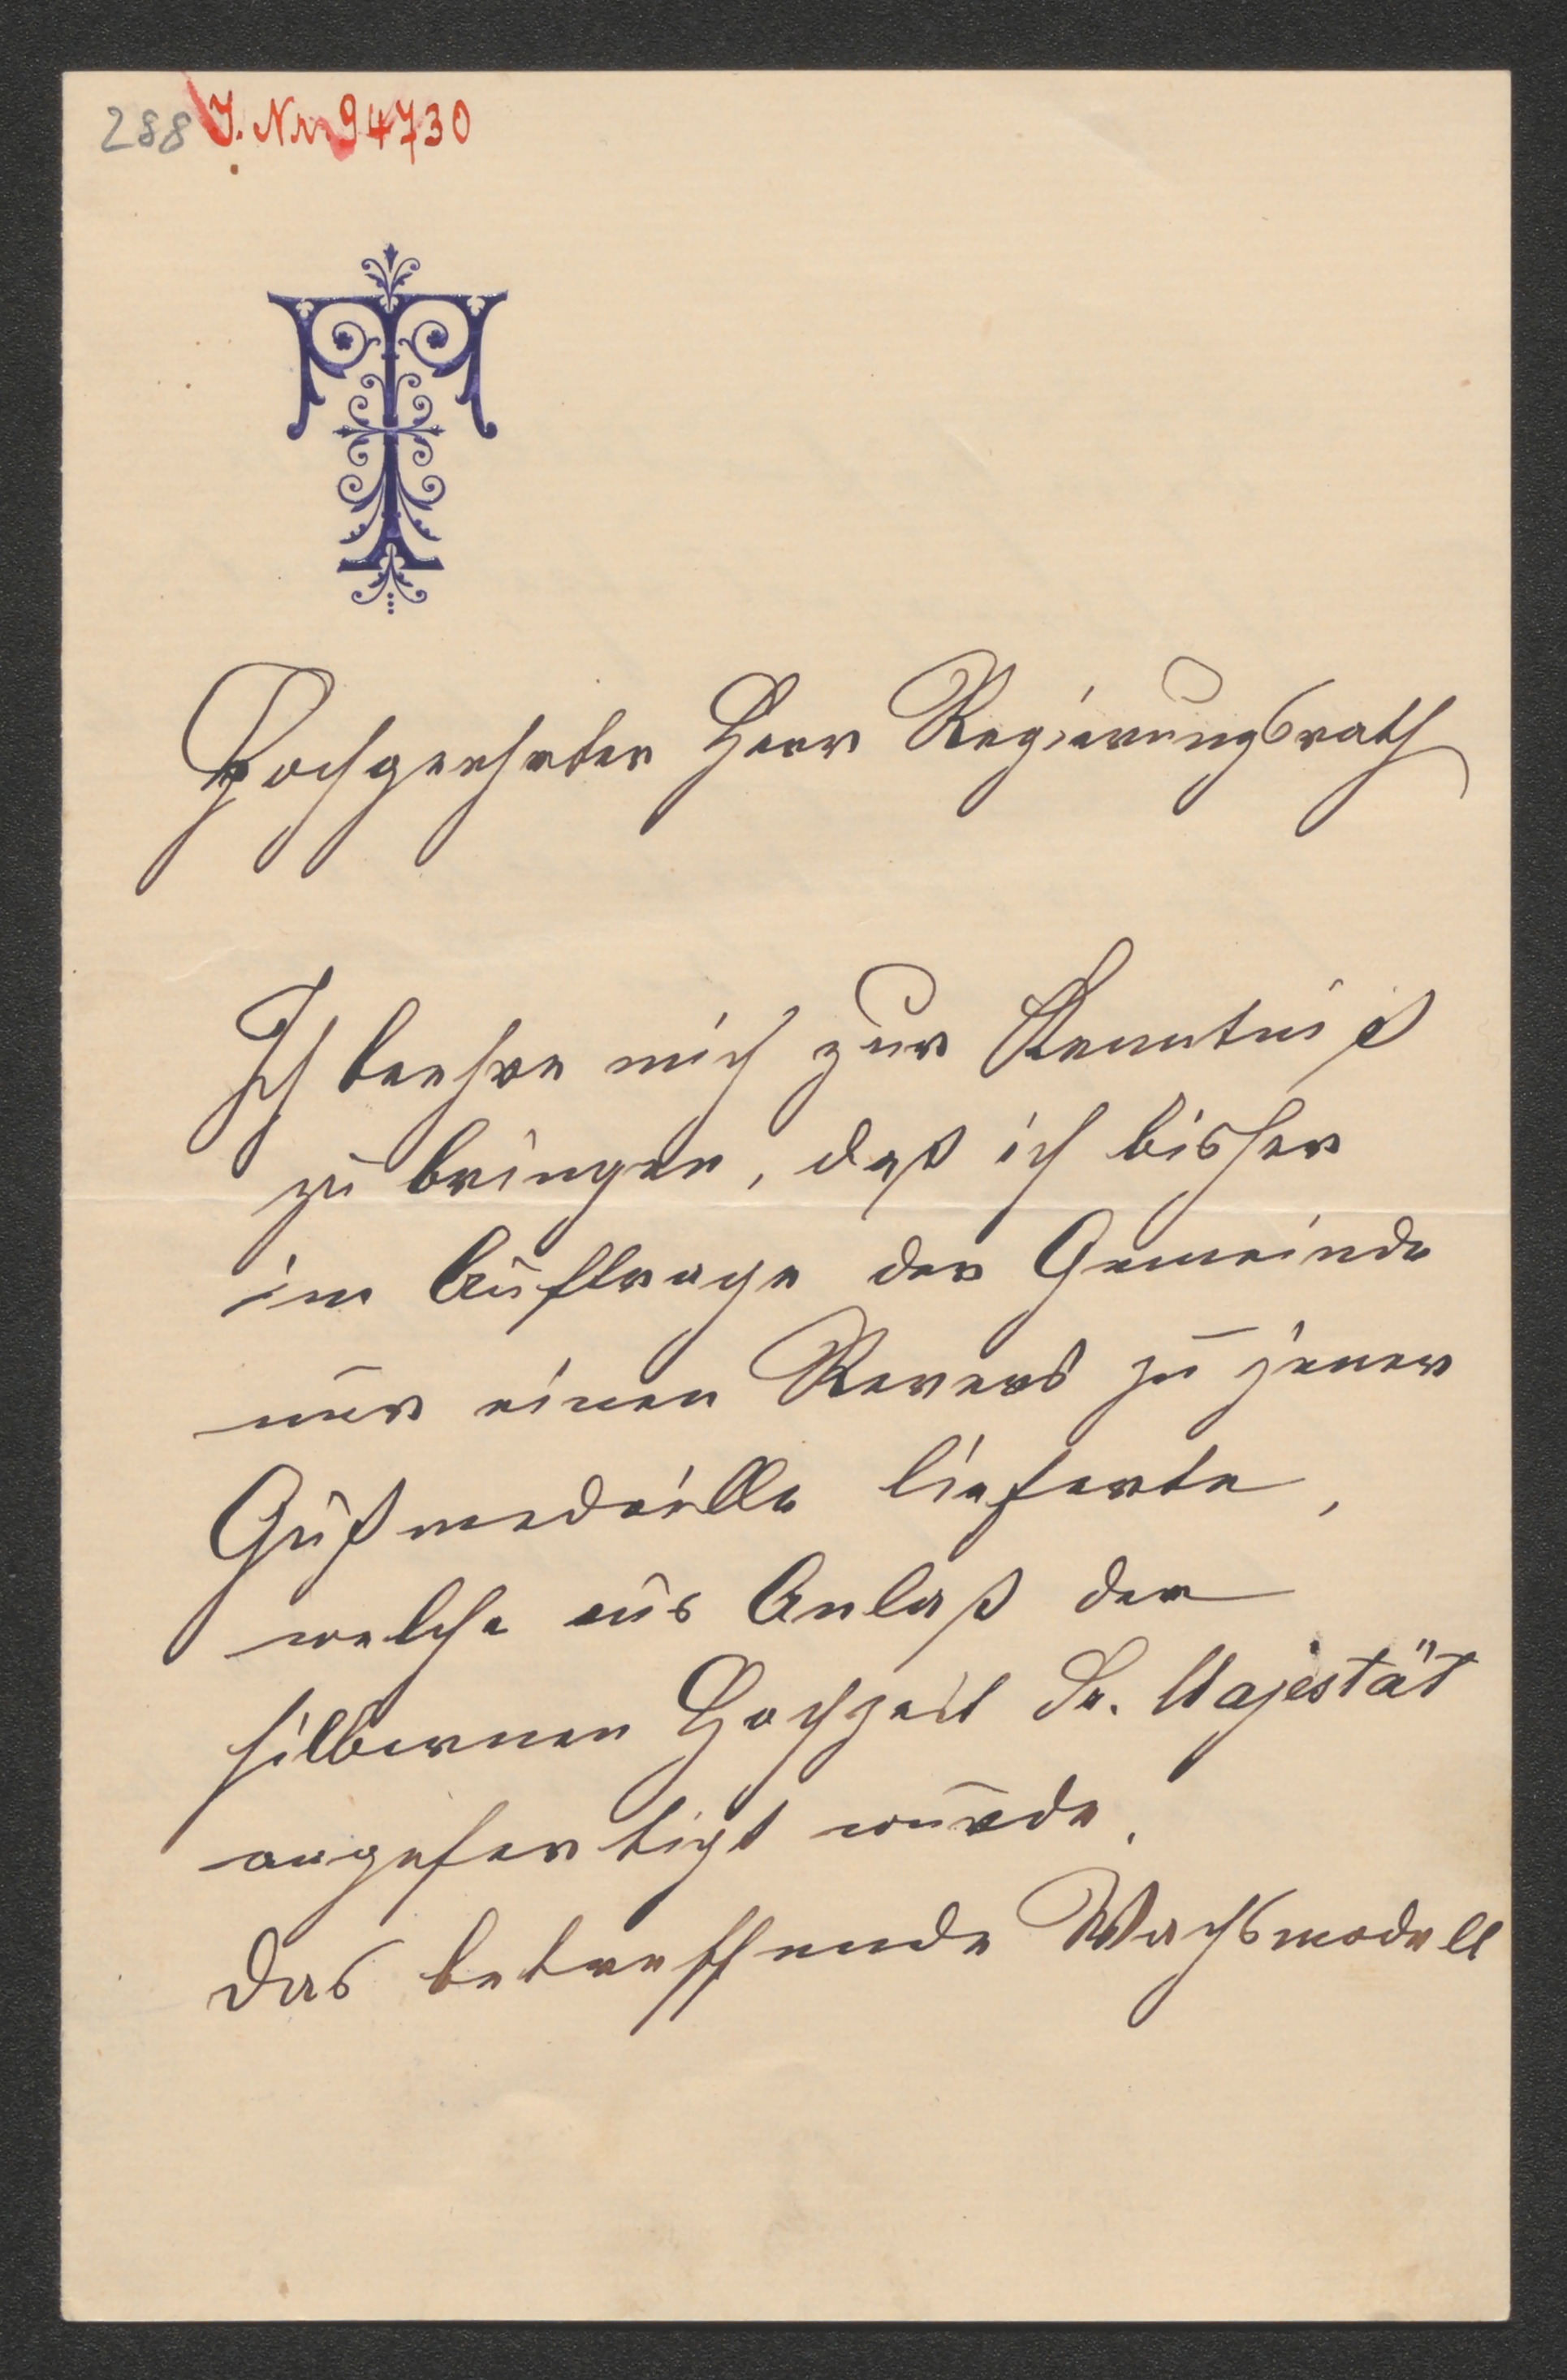 288 J. Nr. 94730
T
Hochgeehrter Herr Regierungsrath
Ich beehre mich zur Kenntniß
zu bringen, daß ich bisher
im Auftrage der Gemeinde
nur einen Revers zu jener
Gußmedaille lieferte,
welche aus Anlaß der
silbernen Hochzeit Sr. Majestät
angefertigt wurde.
Das betreffende Wachsmodell